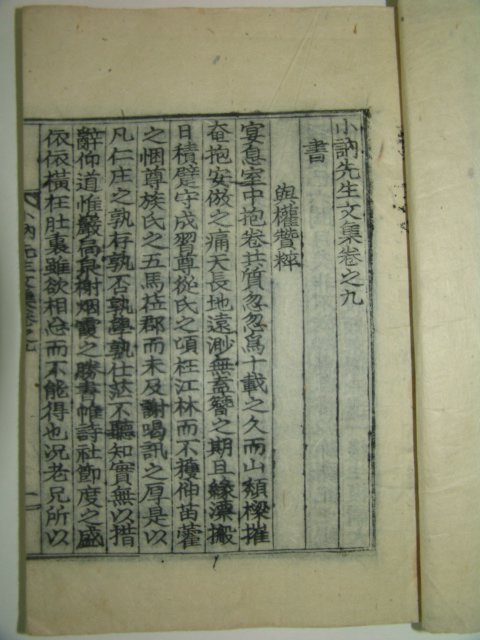 小訥先生文集卷之九
書
與權贊粹
宴息室中抱卷共質忽忽爲十載之久而山頹樑摧
奄抱安倣之痛天長地遠渺無盍簪之期且緣漂搬
日積躄守成習尊從氏之頃枉江林而不獲伸苗藿
之悃尊族氏之五馬莅郡而未及謝喝訊之厚是以
凡仁庄之孰存孰否孰學孰仕茫不聽知實無以措
辭仰道惟嚴局泉榭烟霞之勝書帷詩社卽度之盛
依依橫枉肚裏雖欲相忘而不能得也況老兄所以
小訥先生文集卷九
一